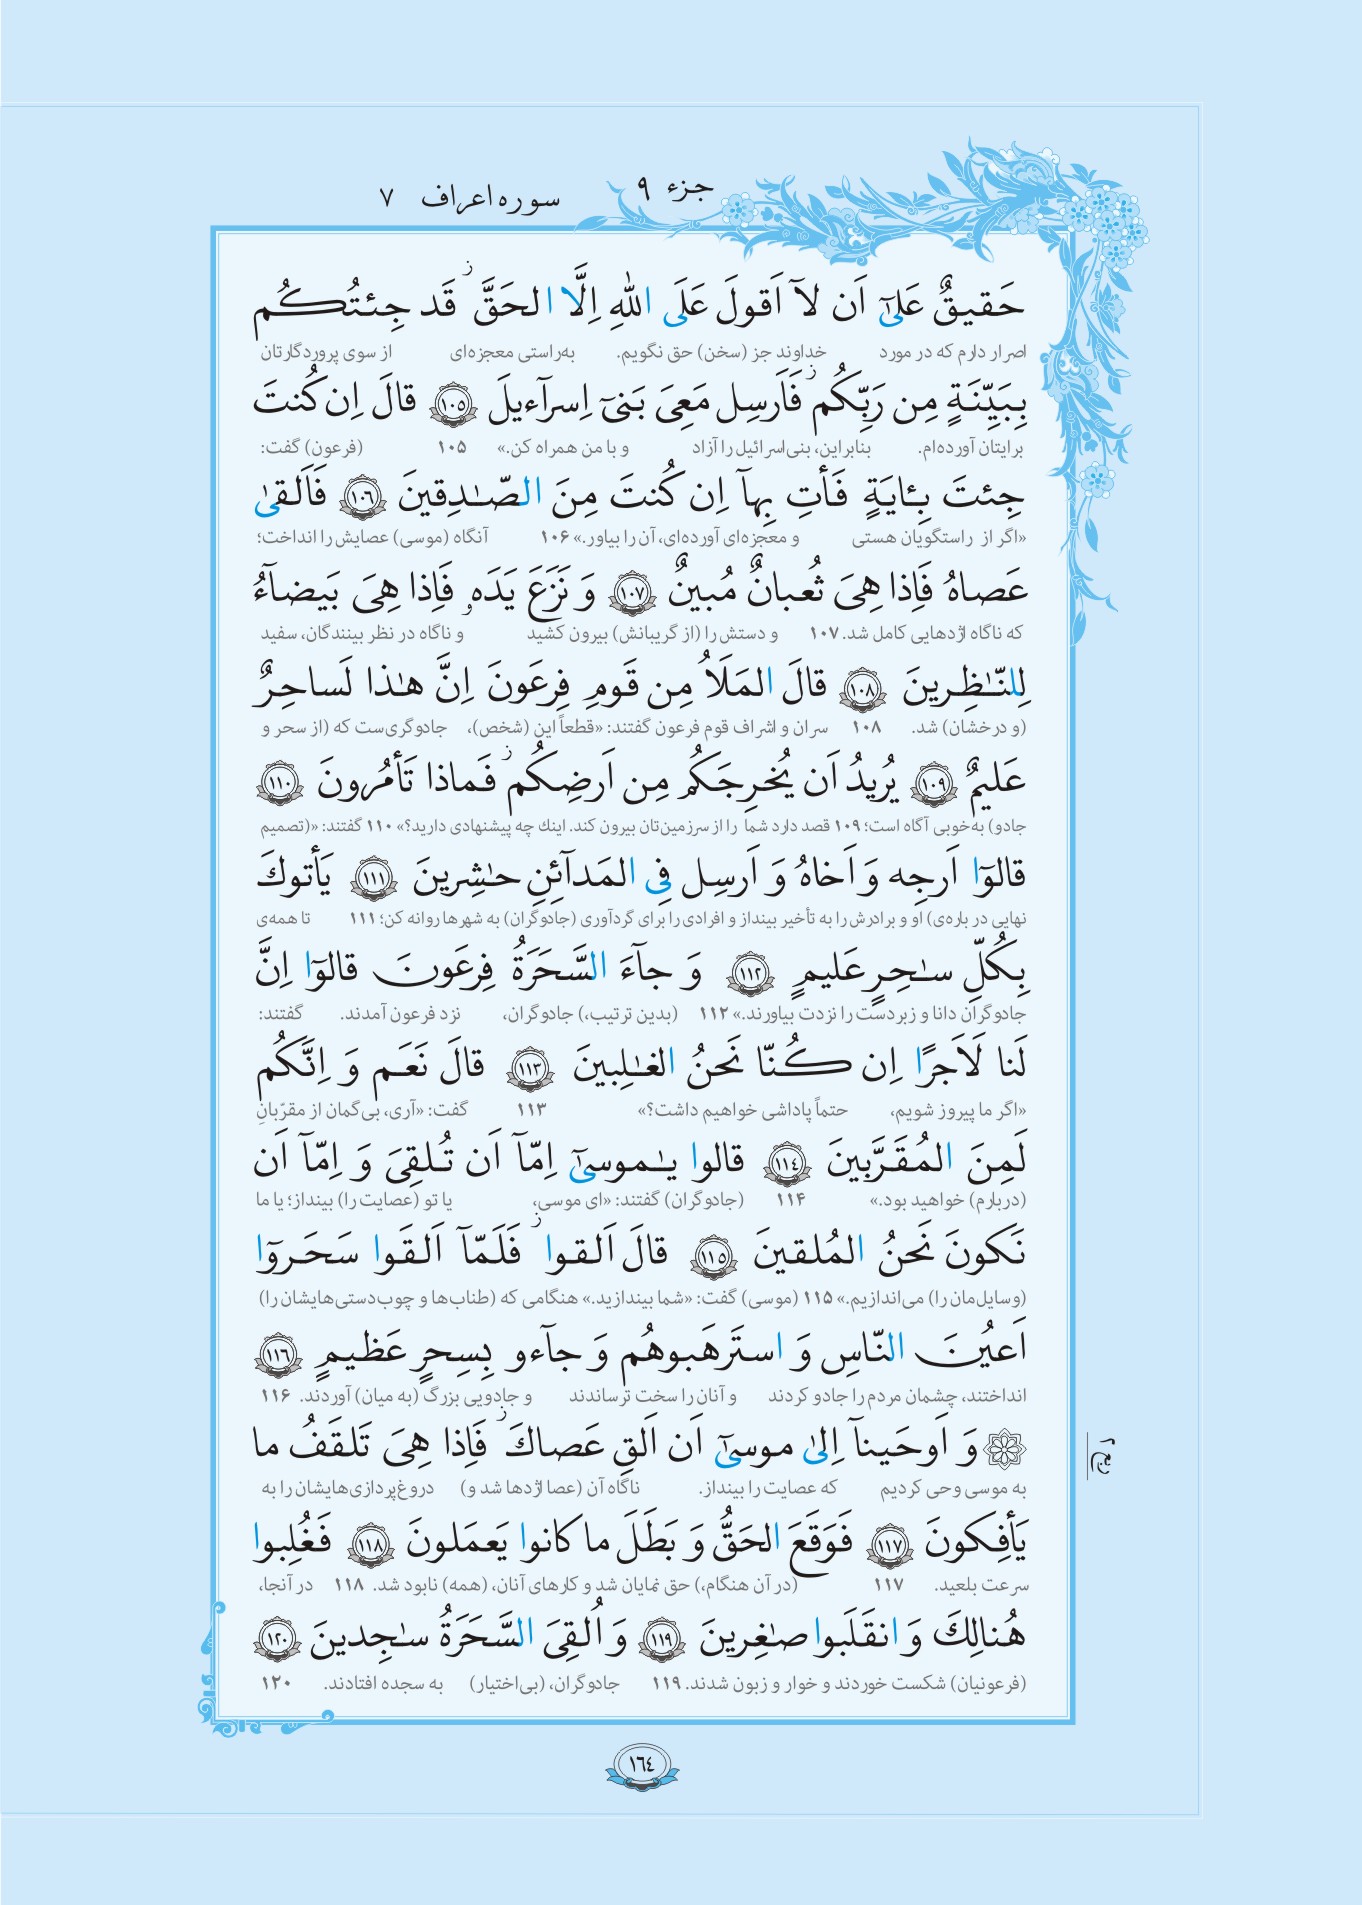 جزء ۹
سوره اعراف ۷
حَقیقٌ عَلیٰٓ اَن لآ اَقولَ عَلَی اللّٰهِ اِلَّا الحَقَّ ۚ قَد جِئتُکُم
اصرار دارم که در مورد خداوند جز (سخن) حق نگویم. به‌راستی معجزه‌ای از سوی پروردگارتان
بِبَیِّنَةٍ مِن رَبِّکُم ۚ فَاَرسِل مَعِیَ بَنیٓ اِسرآءیلَ ﴿۱۰۵﴾ قالَ اِن کُنتَ
برایتان آورده‌ام. بنابراین، بنی‌اسرائیل را آزاد و با من همراه کن.» ۱۰۵ (فرعون) گفت:
جِئتَ بِـٔایَةٍ فَأتِ بِهآ اِن کُنتَ مِنَ الصّـٰدِقینَ ﴿۱۰۶﴾ فَاَلقیٰ
«اگر از راستگویان هستی و معجزه‌ای آورده‌ای، آن را بیاور.» ۱۰۶ آنگاه (موسی) عصایش را انداخت؛
عَصاهُ فَاِذا هِیَ ثُعبانٌ مُبینٌ ﴿۱۰۷﴾ وَ نَزَعَ یَدَهٗ فَاِذا هِیَ بَیضآءُ
که ناگاه اژدهایی کامل شد. ۱۰۷ و دستش را (از گریبانش) بیرون کشید و ناگاه در نظر بینندگان، سفید
لِلنّـٰظِرینَ ﴿۱۰۸﴾ قالَ المَلَاُ مِن قَومِ فِرعَونَ اِنَّ هٰذا لَساحِرٌ
(و درخشان) شد. ۱۰۸ سران و اشراف قوم فرعون گفتند: «قطعاً این (شخص)، جادوگری‌ست که (از سحر و
عَلیمٌ ﴿۱۰۹﴾ یُریدُ اَن یُخرِجَکُم مِن اَرضِکُم ۚ فَماذا تَأمُرونَ ﴿۱۱۰﴾
جادو) به‌خوبی آگاه است؛ ۱۰۹ قصد دارد شما را از سرزمین‌تان بیرون کند. اینك چه پیشنهادی دارید؟» ۱۱۰ گفتند: «(تصمیم
قالوٓا اَرجِه وَ اَخاهُ وَ اَرسِل فِی المَدآئِنِ حـٰشِرینَ ﴿۱۱۱﴾ یَأتوكَ
نهایی در باره‌ی) او و برادرش را به تأخیر بینداز و افرادی را برای گردآوری (جادوگران) به شهرها روانه کن؛ ۱۱۱ تا همه‌ی
بِکُلِّ سـٰحِرٍ عَلیمٍ ﴿۱۱۲﴾ وَ جآءَ السَّحَرَةُ فِرعَونَ قالوٓا اِنَّ
جادوگران دانا و زبردست را نزدت بیاورند.» ۱۱۲ (بدین ترتیب،) جادوگران، نزد فرعون آمدند. گفتند:
لَنا لَاَجرًا اِن کُنّا نَحنُ الغـٰلِبینَ ﴿۱۱۳﴾ قالَ نَعَم وَ اِنَّکُم
«اگر ما پیروز شویم، حتماً پاداشی خواهیم داشت؟» ۱۱۳ گفت: «آری، بی‌گمان از مقرّبانِ
لَمِنَ المُقَرَّبینَ ﴿۱۱۴﴾ قالوا یـٰموسیٰٓ اِمّآ اَن تُلقِیَ وَ اِمّآ اَن
(دربارم) خواهید بود.» ۱۱۴ (جادوگران) گفتند: «ای موسی، یا تو (عصایت را) بینداز؛ یا ما
نَکونَ نَحنُ المُلقینَ ﴿۱۱۵﴾ قالَ اَلقوا ۚ فَلَمّآ اَلقَوا سَحَروٓا
(وسایل‌مان را) می‌اندازیم.» ۱۱۵ (موسی) گفت: «شما بیندازید.» هنگامی که (طناب‌ها و چوب‌دستی‌هایشان را)
اَعیُنَ النّاسِ وَ استَرهَبوهُم وَ جآءو بِسِحرٍ عَظیمٍ ﴿۱۱۶﴾
انداختند، چشمان مردم را جادو کردند و آنان را سخت ترساندند و جادویی بزرگ (به میان) آوردند. ۱۱۶
۞ وَ اَوحَینآ اِلیٰ موسیٰٓ اَن اَلقِ عَصاكَ ۚ فَاِذا هِیَ تَلقَفُ ما
به موسی وحی کردیم که عصایت را بینداز. ناگاه آن (عصا اژدها شد و) دروغ‌پردازی‌هایشان را به
یَأفِکونَ ﴿۱۱۷﴾ فَوَقَعَ الحَقُّ وَ بَطَلَ ما کانوا یَعمَلونَ ﴿۱۱۸﴾ فَغُلِبوا
سرعت بلعید. ۱۱۷ (در آن هنگام،) حق نمایان شد و کارهای آنان، (همه) نابود شد. ۱۱۸ در آنجا،
هُنالِكَ وَ انقَلَبوا صـٰغِرینَ ﴿۱۱۹﴾ وَ اُلقِیَ السَّحَرَةُ سـٰجِدینَ ﴿۱۲۰﴾
(فرعونیان) شکست خوردند و خوار و زبون شدند. ۱۱۹ جادوگران، (بی‌اختیار) به سجده افتادند. ۱۲۰
١٦٤